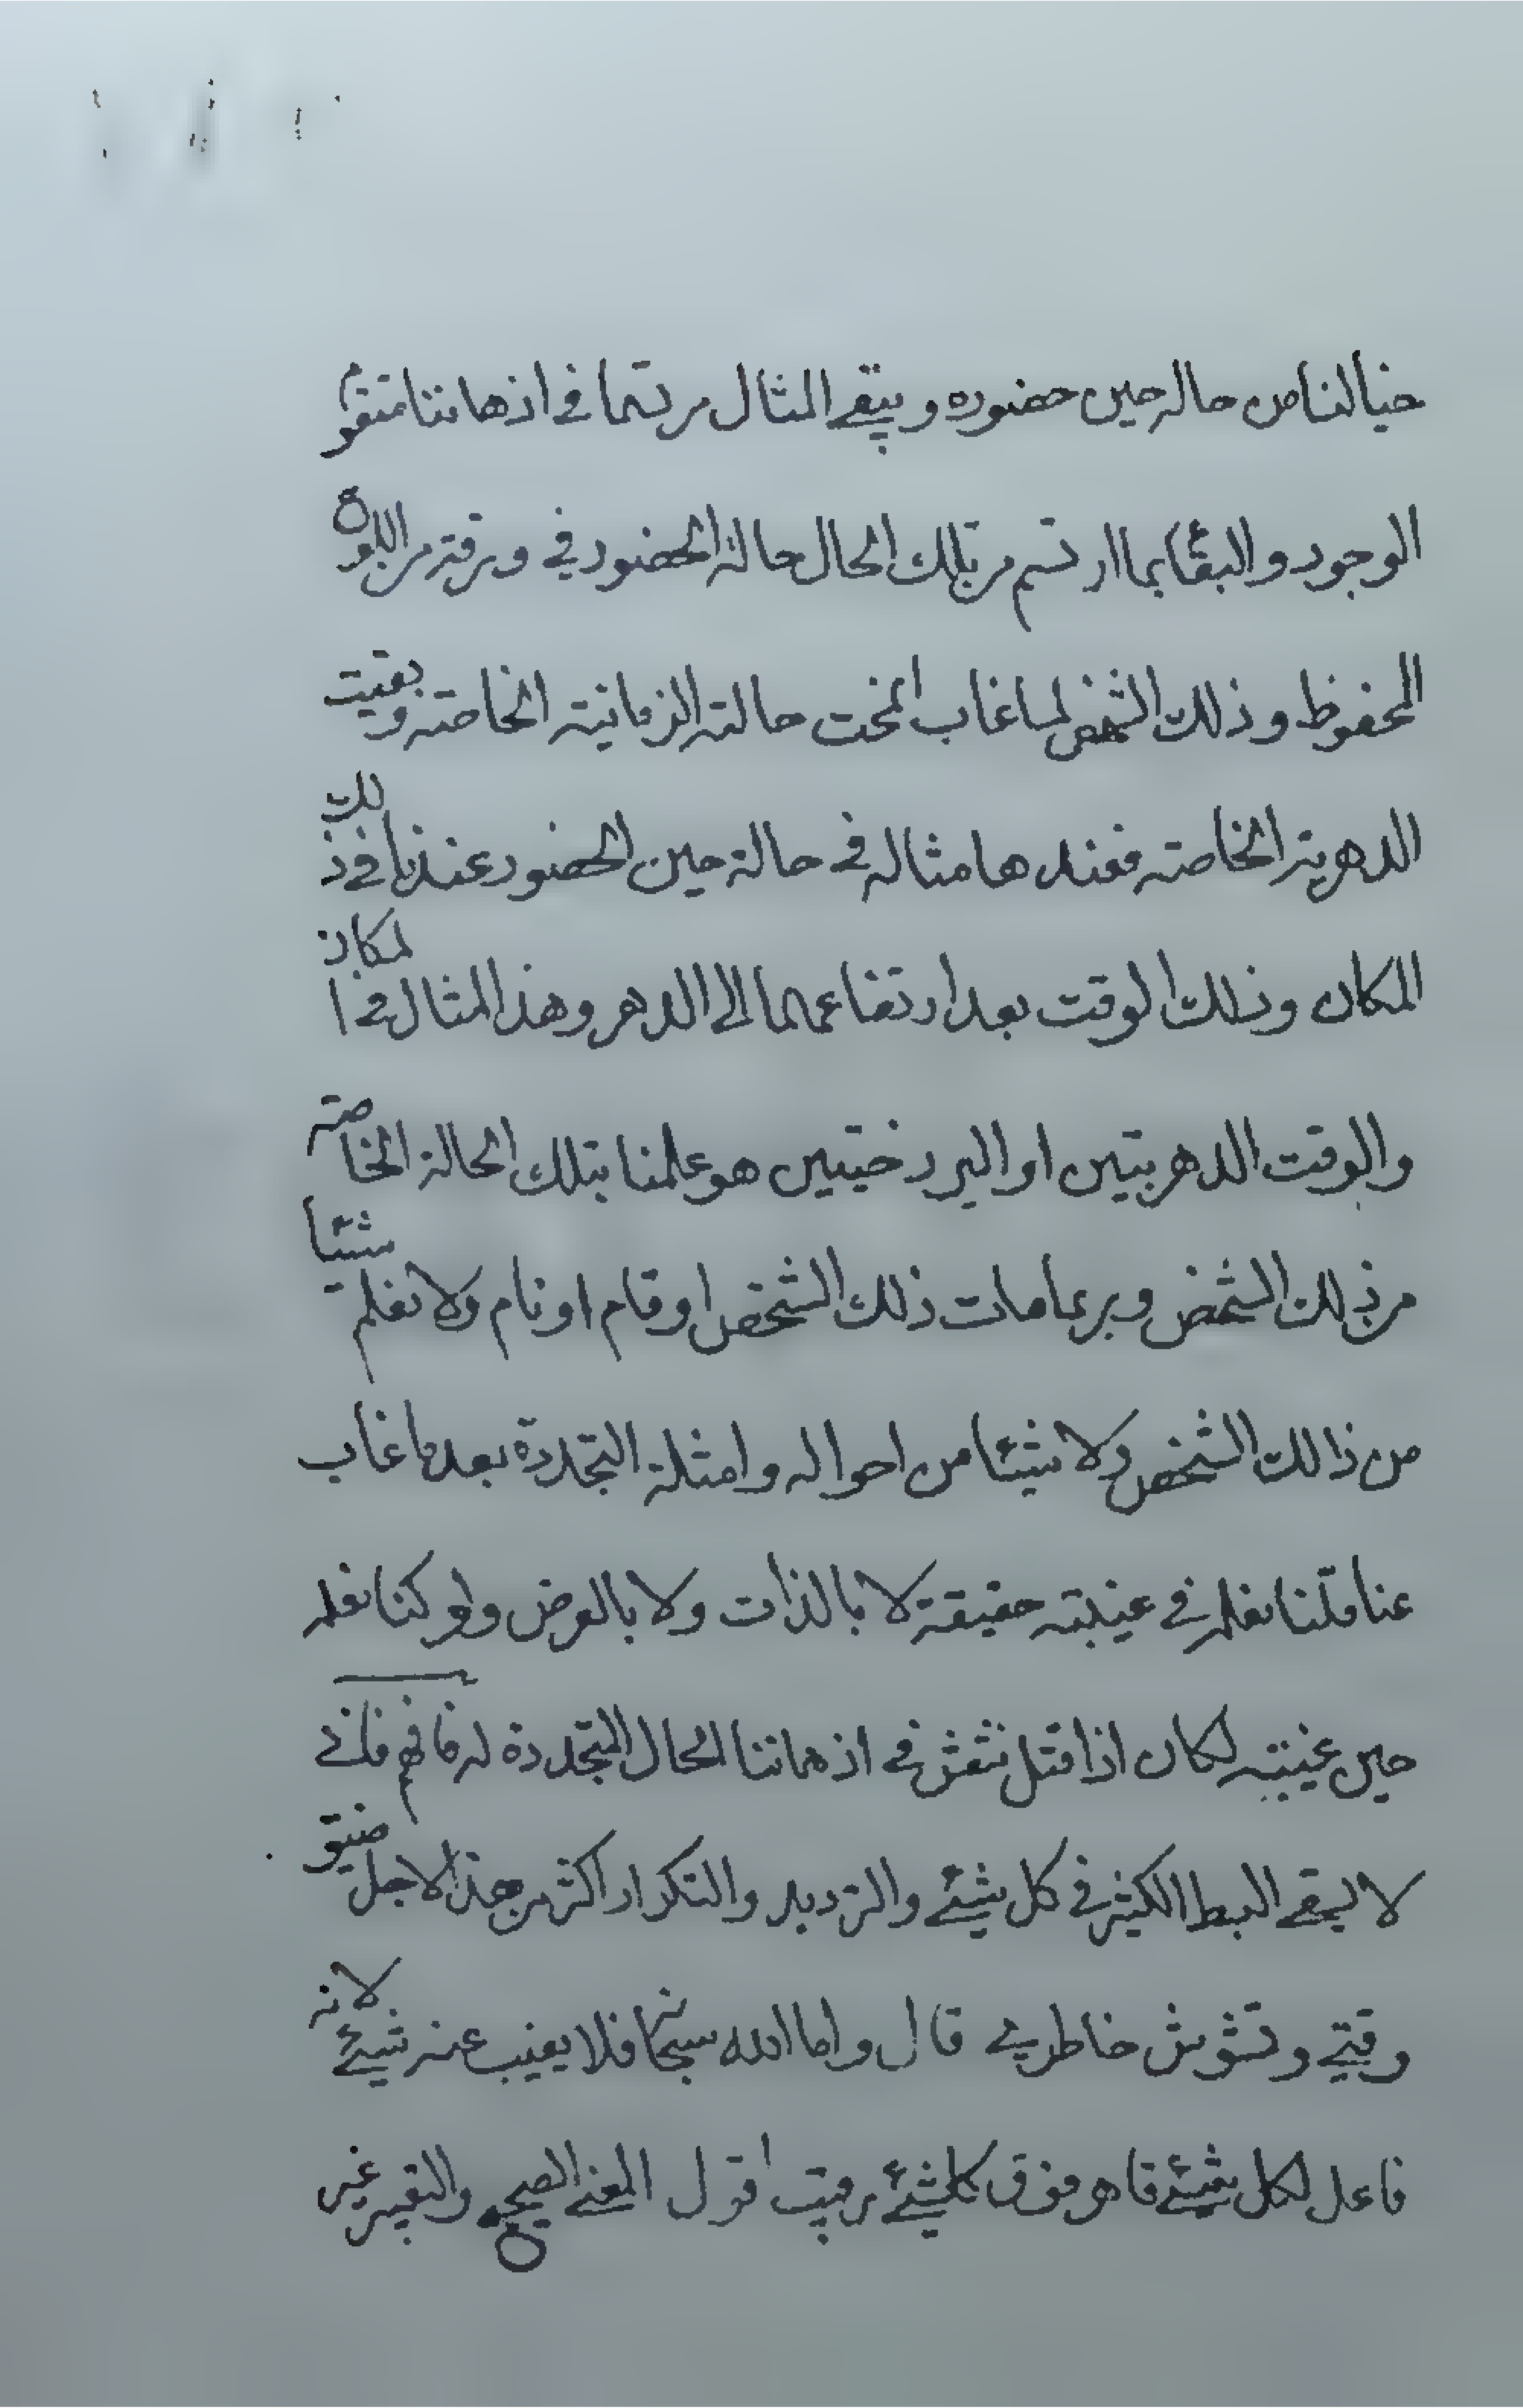 خيالنا من حاله حين حضوره ويبقى المثال مرتسما في اذهاننا متقوم
الوجود والبقاء بما ارتسم من تلك الحال حالة الحضور في ورقة من اللوح
المحفوظ وذلك الشخص لما غاب انمحت حالته الزمانية الخاصة وبقيت
الدهرية الخاصة فعندها مثاله في حالة حين الحضور عندنا في ذلك
المكان وذلك الوقت بعد ارتفاعهما الى الدهر وهذا المثال في المكان
والوقت الدهريتين او البرزخيتين هو علمنا بتلك الحالة الخاصة
من ذلك الشخص وبرعا مات ذلك الشخص او قام او نام ولا نعلم شيئا
من ذالك الشخص ولا شيئا من احواله وامثلة التجددة بعد ما غاب
عنا قلنا نعلم في غيبته حقيقة لا بالذات ولا بالعرض ولو كنا نعلم
حين غيبته لكان اذا قتل نتقش في اذهاننا الحال المتجددة له فافهم فاني
لا يبقى البسط الكثير في كل شيئ والترديد والتكرار اكثر من هذا لاجل ضيق
وقتي وتشوش خاطري قال واما الله سبحانه فلا يغيب عنه شيئ لانه
فاعل لكل شيئ قاهر فوق كلشيئ رقيب اقول المعنى الصحيح والتعبير غير